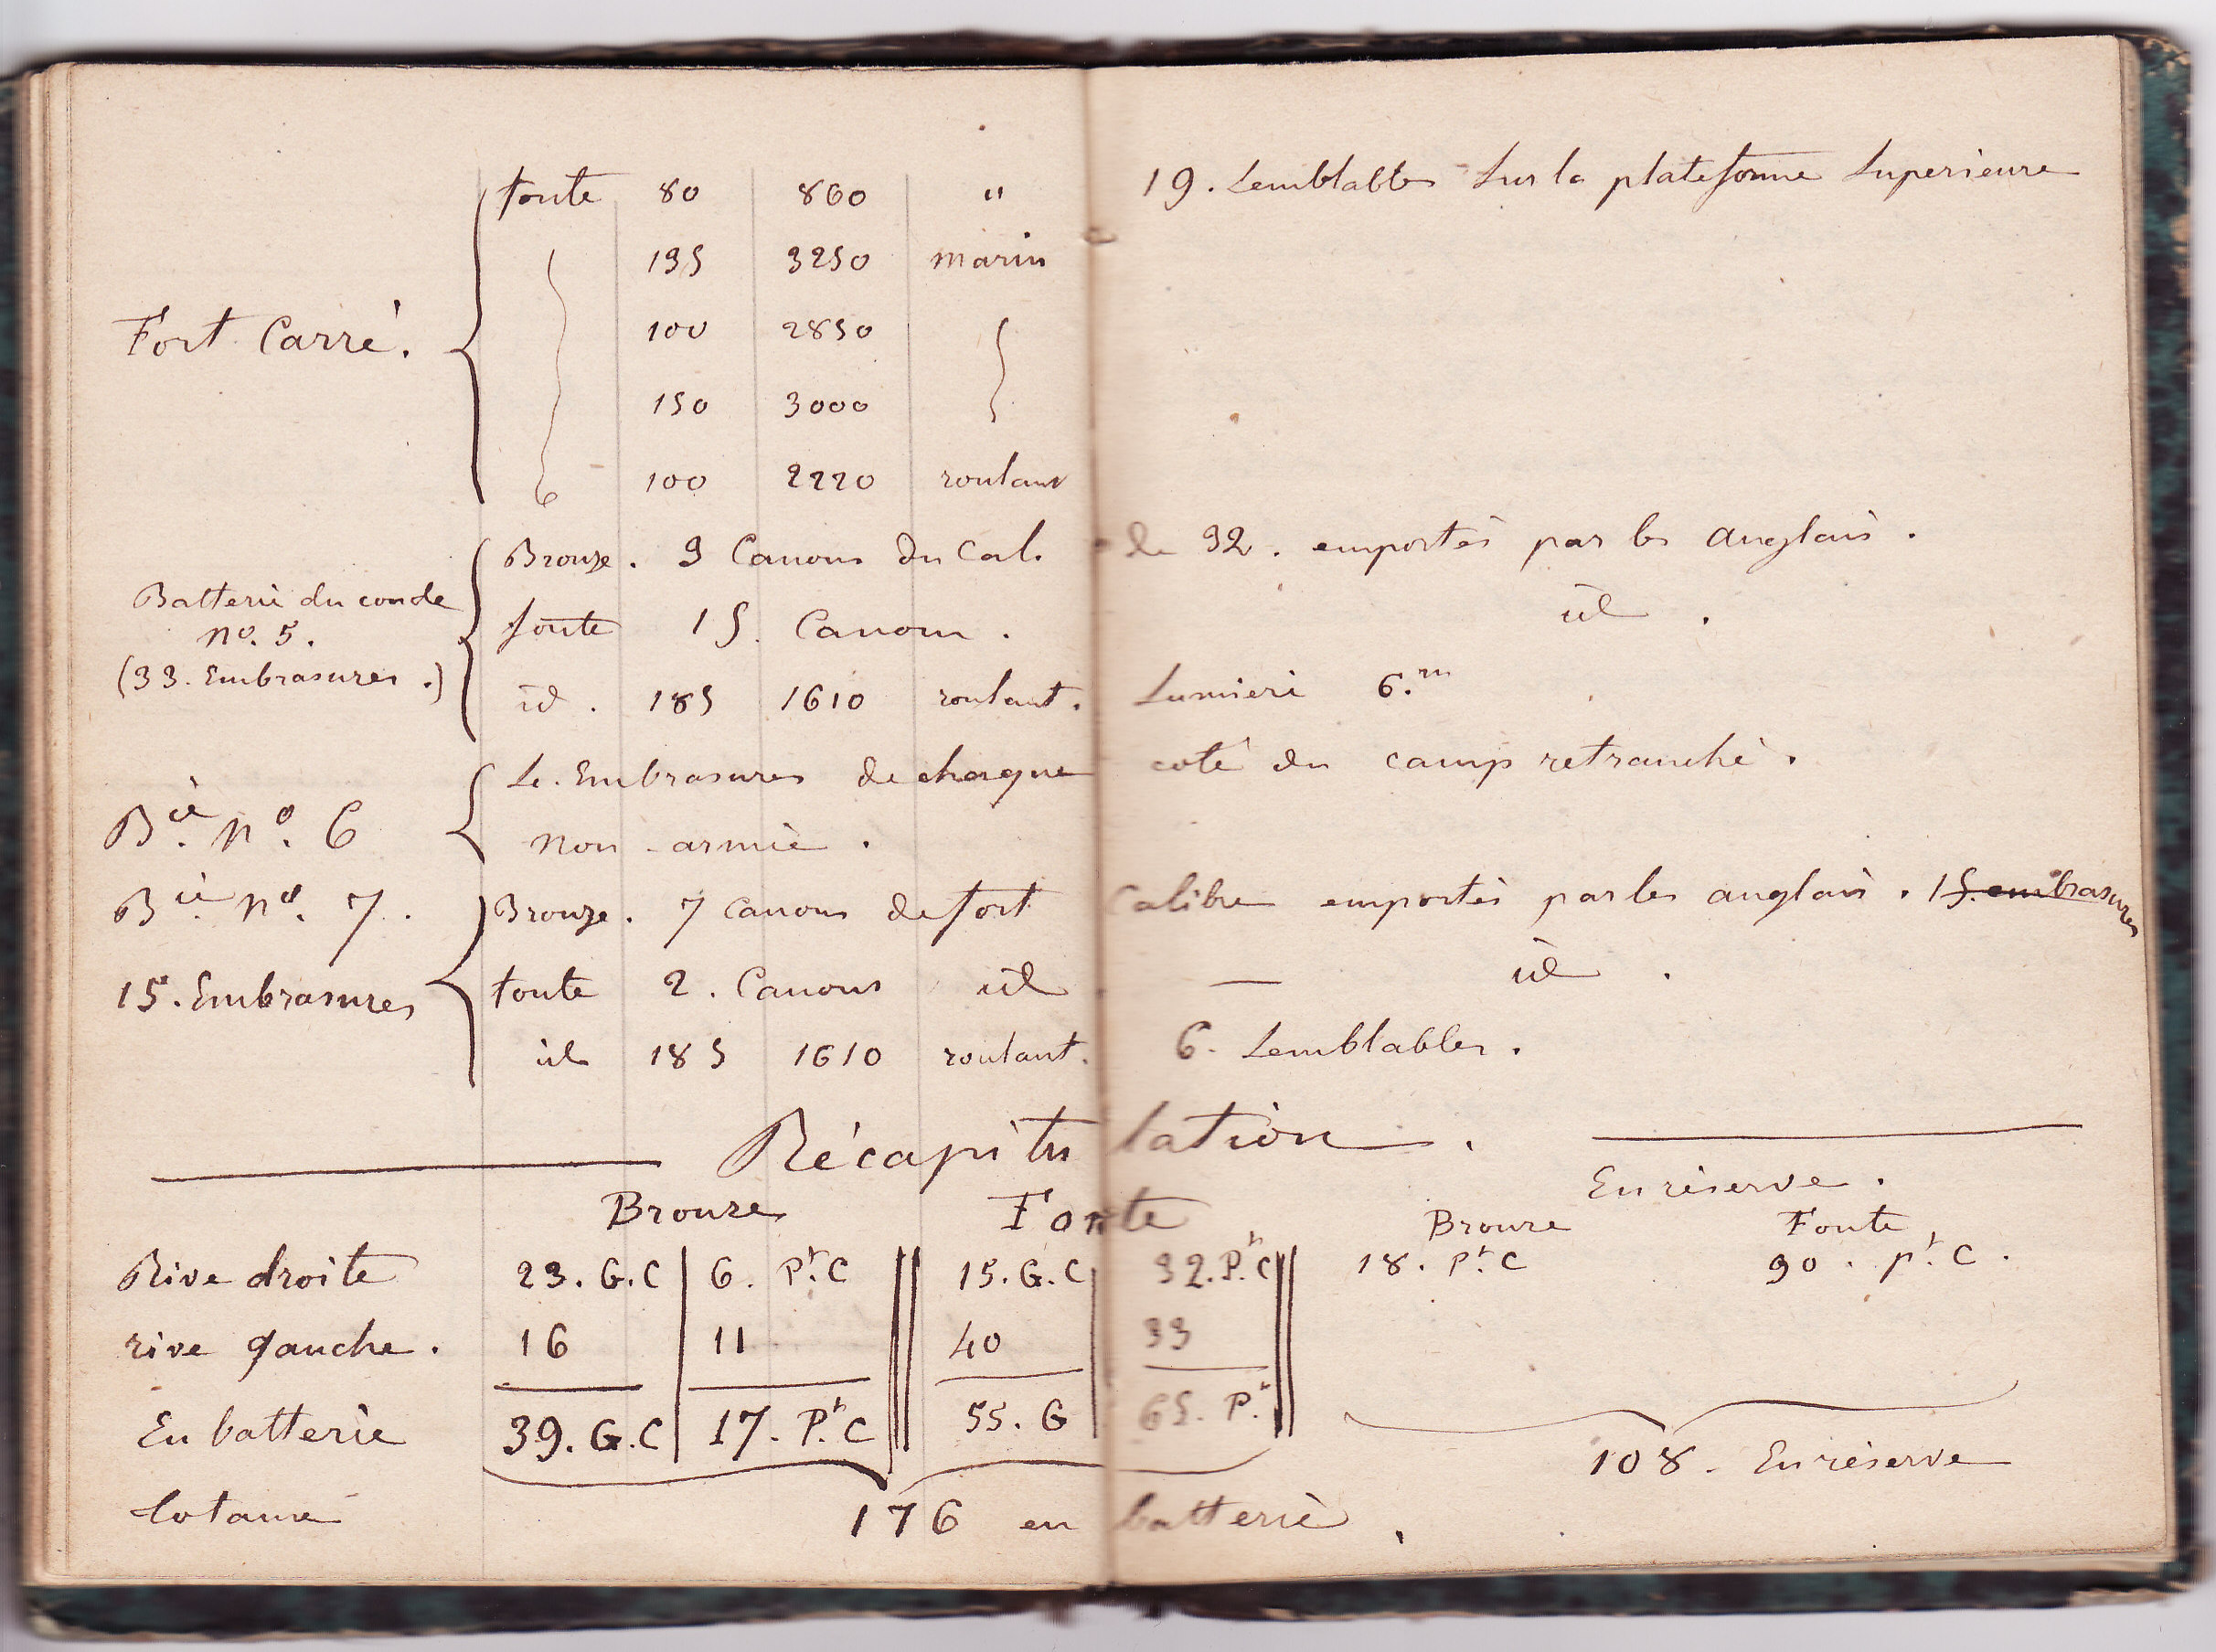 fonte 80 860 " 19. Semblables sur la plateforme Superieure
135 3250 marin
Fort Carré. 100 2850
150 3000
100 2220 roulant
Bronze. 9 Canons du Cal. de 32. emportés par les anglais.
Batterie du conde
No. 5. fonte 15. Canons. id.
(33. Embrasures.) id. 185 1610 roulant. Lumiere 6.m
Le. Embrasures de chaque coté du camp retranché.
Bie. No. 6 non armée.
Bie. No. 7. Bronze. 7 canons de fort Calibre emportés par les anglais. 15. embrasures
15. Embrasures fonte 2. Canons id — id.
id 185 1610 roulant. 6. Semblables.
Récapitulation.
En réserve.
Bronze Fonte Bronze Fonte
Rive droite 23. G.C 6. Pt. C 15. G.C 32. Pt. C 18. Pt. C 90. pt. C.
rive gauche. 16 11 40 33
En batterie 39. G.C 17. Pt. C 55. G 65. Pt.
108. En réserve
176 en batterie.